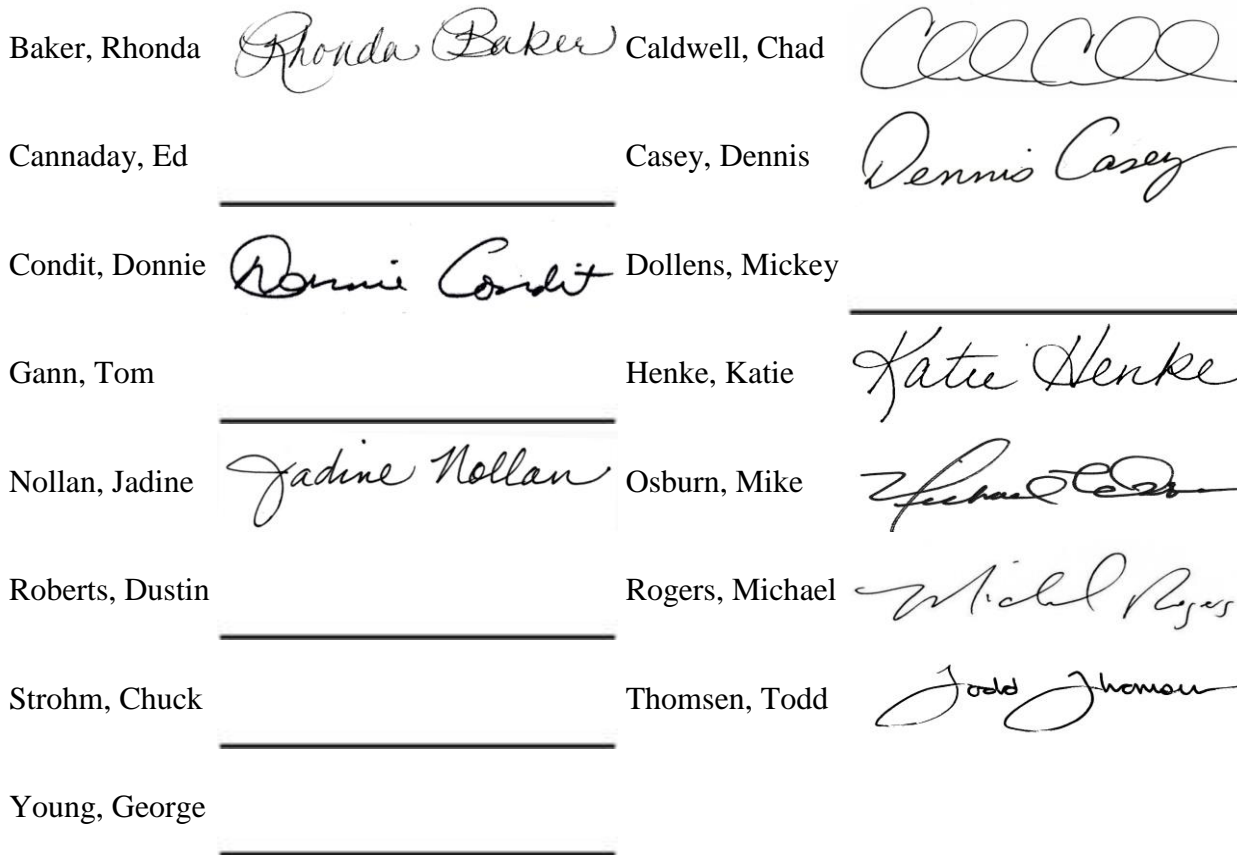 Baker, Rhonda Rhonda Baker Caldwell, Chad
Cannaday, Ed Casey, Dennis Dennis Casey
Condit, Donnie Donnie Condit Dollens, Mickey
Gann, Tom Henke, Katie Katie Henke
Nollan, Jadine Jadine Nollan Osburn, Mike
Roberts, Dustin Rogers, Michael Michael Rogers
Strohm, Chuck Thomsen, Todd Todd Thomsen
Young, George